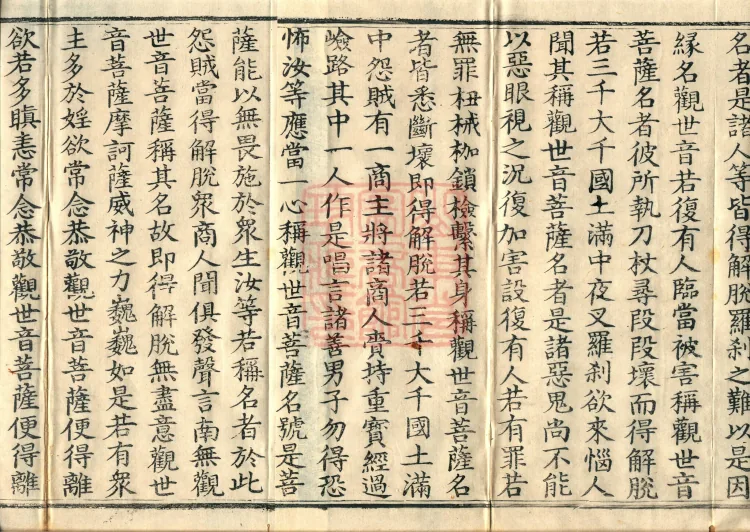 名者是諸人等皆得解脫羅刹之難以是因
緣名觀世音若復有人臨當被害稱觀世音
菩薩名者彼所執刀杖尋段段壞而得解脫
若三千大千國土滿中夜叉羅刹欲來惱人
聞其稱觀世音菩薩名者是諸惡鬼尚不能
以惡眼視之況復加害設復有人若有罪若
無罪杻械枷鎖檢繫其身稱觀世音菩薩名
者皆悉斷壞即得解脫若三千大千國土滿
中怨賊有一商主將諸商人賫持重寶經過
嶮路其中一人作是唱言諸善男子勿得恐
怖汝等應當一心稱觀世音菩薩名號是菩
薩能以無畏施於眾生汝等若稱名者於此
怨賊當得解脫眾商人聞俱發聲言南無觀
世音菩薩稱其名故即得解脫無盡意觀世
音菩薩摩訶薩威神之力巍巍如是若有眾
生多於婬欲常念恭敬觀世音菩薩便得離
欲若多瞋恚常念恭敬觀世音菩薩便得離